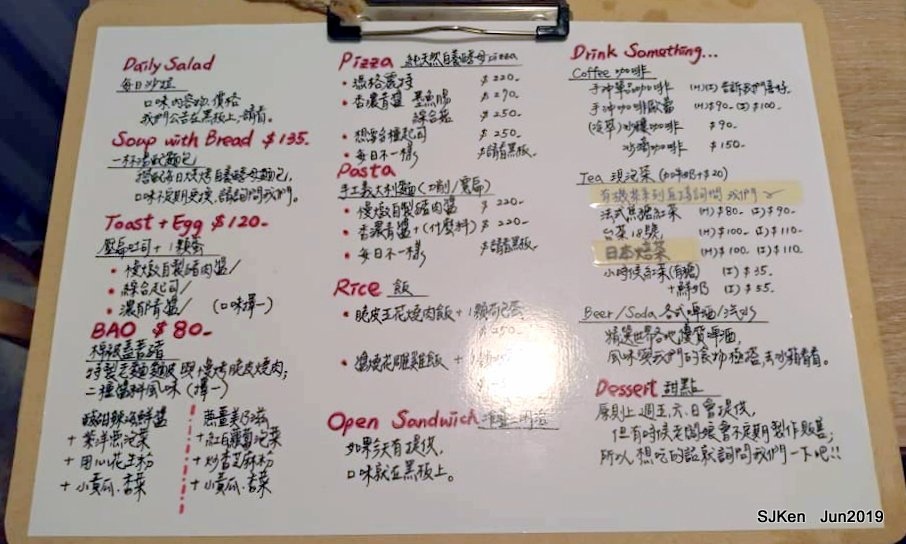 Daily Salad
每日沙拉
口味內容物、價格
我們公告在黑板上,請看。
Soup with Bread $135.
一杯湯配麵包
搭配每日烘烤自養酵母麵包,
口味不定期更換,請詢問我們。
Toast + Egg $120-
厚每吐司 + 1顆蛋
• 慢燉自製豬肉醬/
• 綜合起司/
• 濃郁青醬/ (口味擇一)
BAO $80-
棉被蓋著豬
特製老麵麵皮與慢烤脆皮燒肉;
二種醬料風味(擇一)
酸甜辣海鮮醬
+ 紫洋蔥泡菜
+ 用心花生粉
+ 小黃瓜.香菜
蔥薑美乃滋
+ 紅白蘿蔔泡菜
+ 炒香芝麻粉
+ 小黃瓜.香菜
Pizza 純天然自養酵母pizza
• 瑪格麗特 $220-
• 香濃青醬 黑魚腸 $290.
綜合菇 $250-
• 想要各種起司 $250-
• 每日不一樣 $請看黑板。
Pasta
手工義大利麵 (
• 慢燉自製豬肉醬 $220-
• 香濃青醬+(什麼料) $220-
• 每日不一樣 $請看黑板。
Rice 飯
• 脆皮王花燒肉飯 + 1顆荷包蛋
$250-
• 花雕雞飯 +
Open Sandwich
如果今天有提供,
口味就在黑板上。
Drink Something...
Coffee 咖啡
手沖單品咖啡 (H)(I)
手沖咖啡歐蕾 (H)$90- (I)$100.
咖啡 $90-
冰滴咖啡 $150-
Tea 現泡茶 (加奶+$20)
有機茶系列直接詢問我們
法式焦糖紅茶 (H)$80- (I)$90-
台茶18號 (H)$100- (I)$110-
日本焙茶 (H)$100. (I)$110.
小時候紅茶(有糖) (I) $35.
+鮮奶 (I) $55.
Beer/Soda 各式啤酒/汽水
精選世界各地優質啤酒,
風味與我們的食物極搭,去冰箱看看。
Dessert 甜點
原則上週五、六、日會提供,
但有時候老闆娘會不定期製作販售;
所以想吃的話就詢問我們一下吧!!
SJKen Jun2019